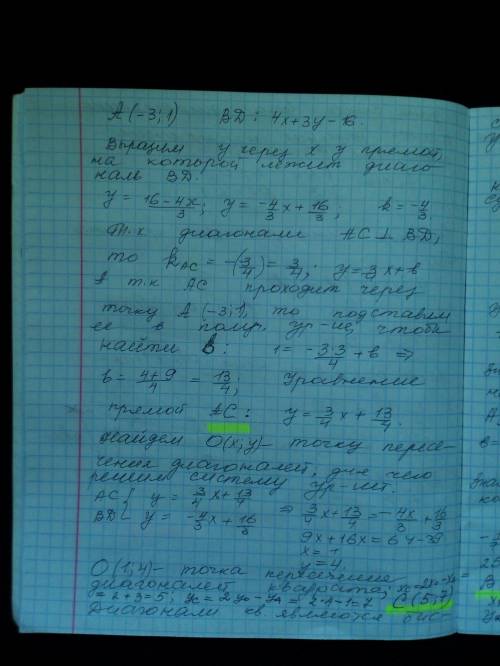 A(-3;1) BD: 4x+3y-16.
Выразим y через x у прямой,
на которой лежит диаго-
наль BD.
y = (16-4x)/3; y = -4/3 x + 16/3; k = -4/3.
Т.к диагонали AC ⊥ BD,
то k_AC = -(-3/4) = 3/4; y = 3/4 x + в
А т.к AC проходит через
точку A(-3;1), то подставим
ее в получ. ур-ие, чтобы
найти в: 1 = -3·3/4 + в ⇒
в = (4+9)/4 = 13/4; Уравнение
прямой AC: y = 3/4 x + 13/4.
Найдем O(x;y) - точку пересе-
чения диагоналей, для чего
решим систему ур-ий.
AC { y = 3/4 x + 13/4 ⇒ 3/4 x + 13/4 = -4x/3 + 16/3
BD { y = -4/3 x + 16/3
9x+16x = 64-39
x = 1
y = 4.
O(1;4) - точка пересечения
диагоналей квадрата; x_c = 2x_0 - x_A =
= 2+3 = 5; y_c = 2y_0 - y_A = 2·4-1 = 7 C(5;7)
Диагонали кв являются бис-